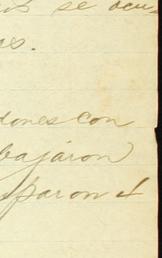 se ocu-
dones con
bajáron
paron el